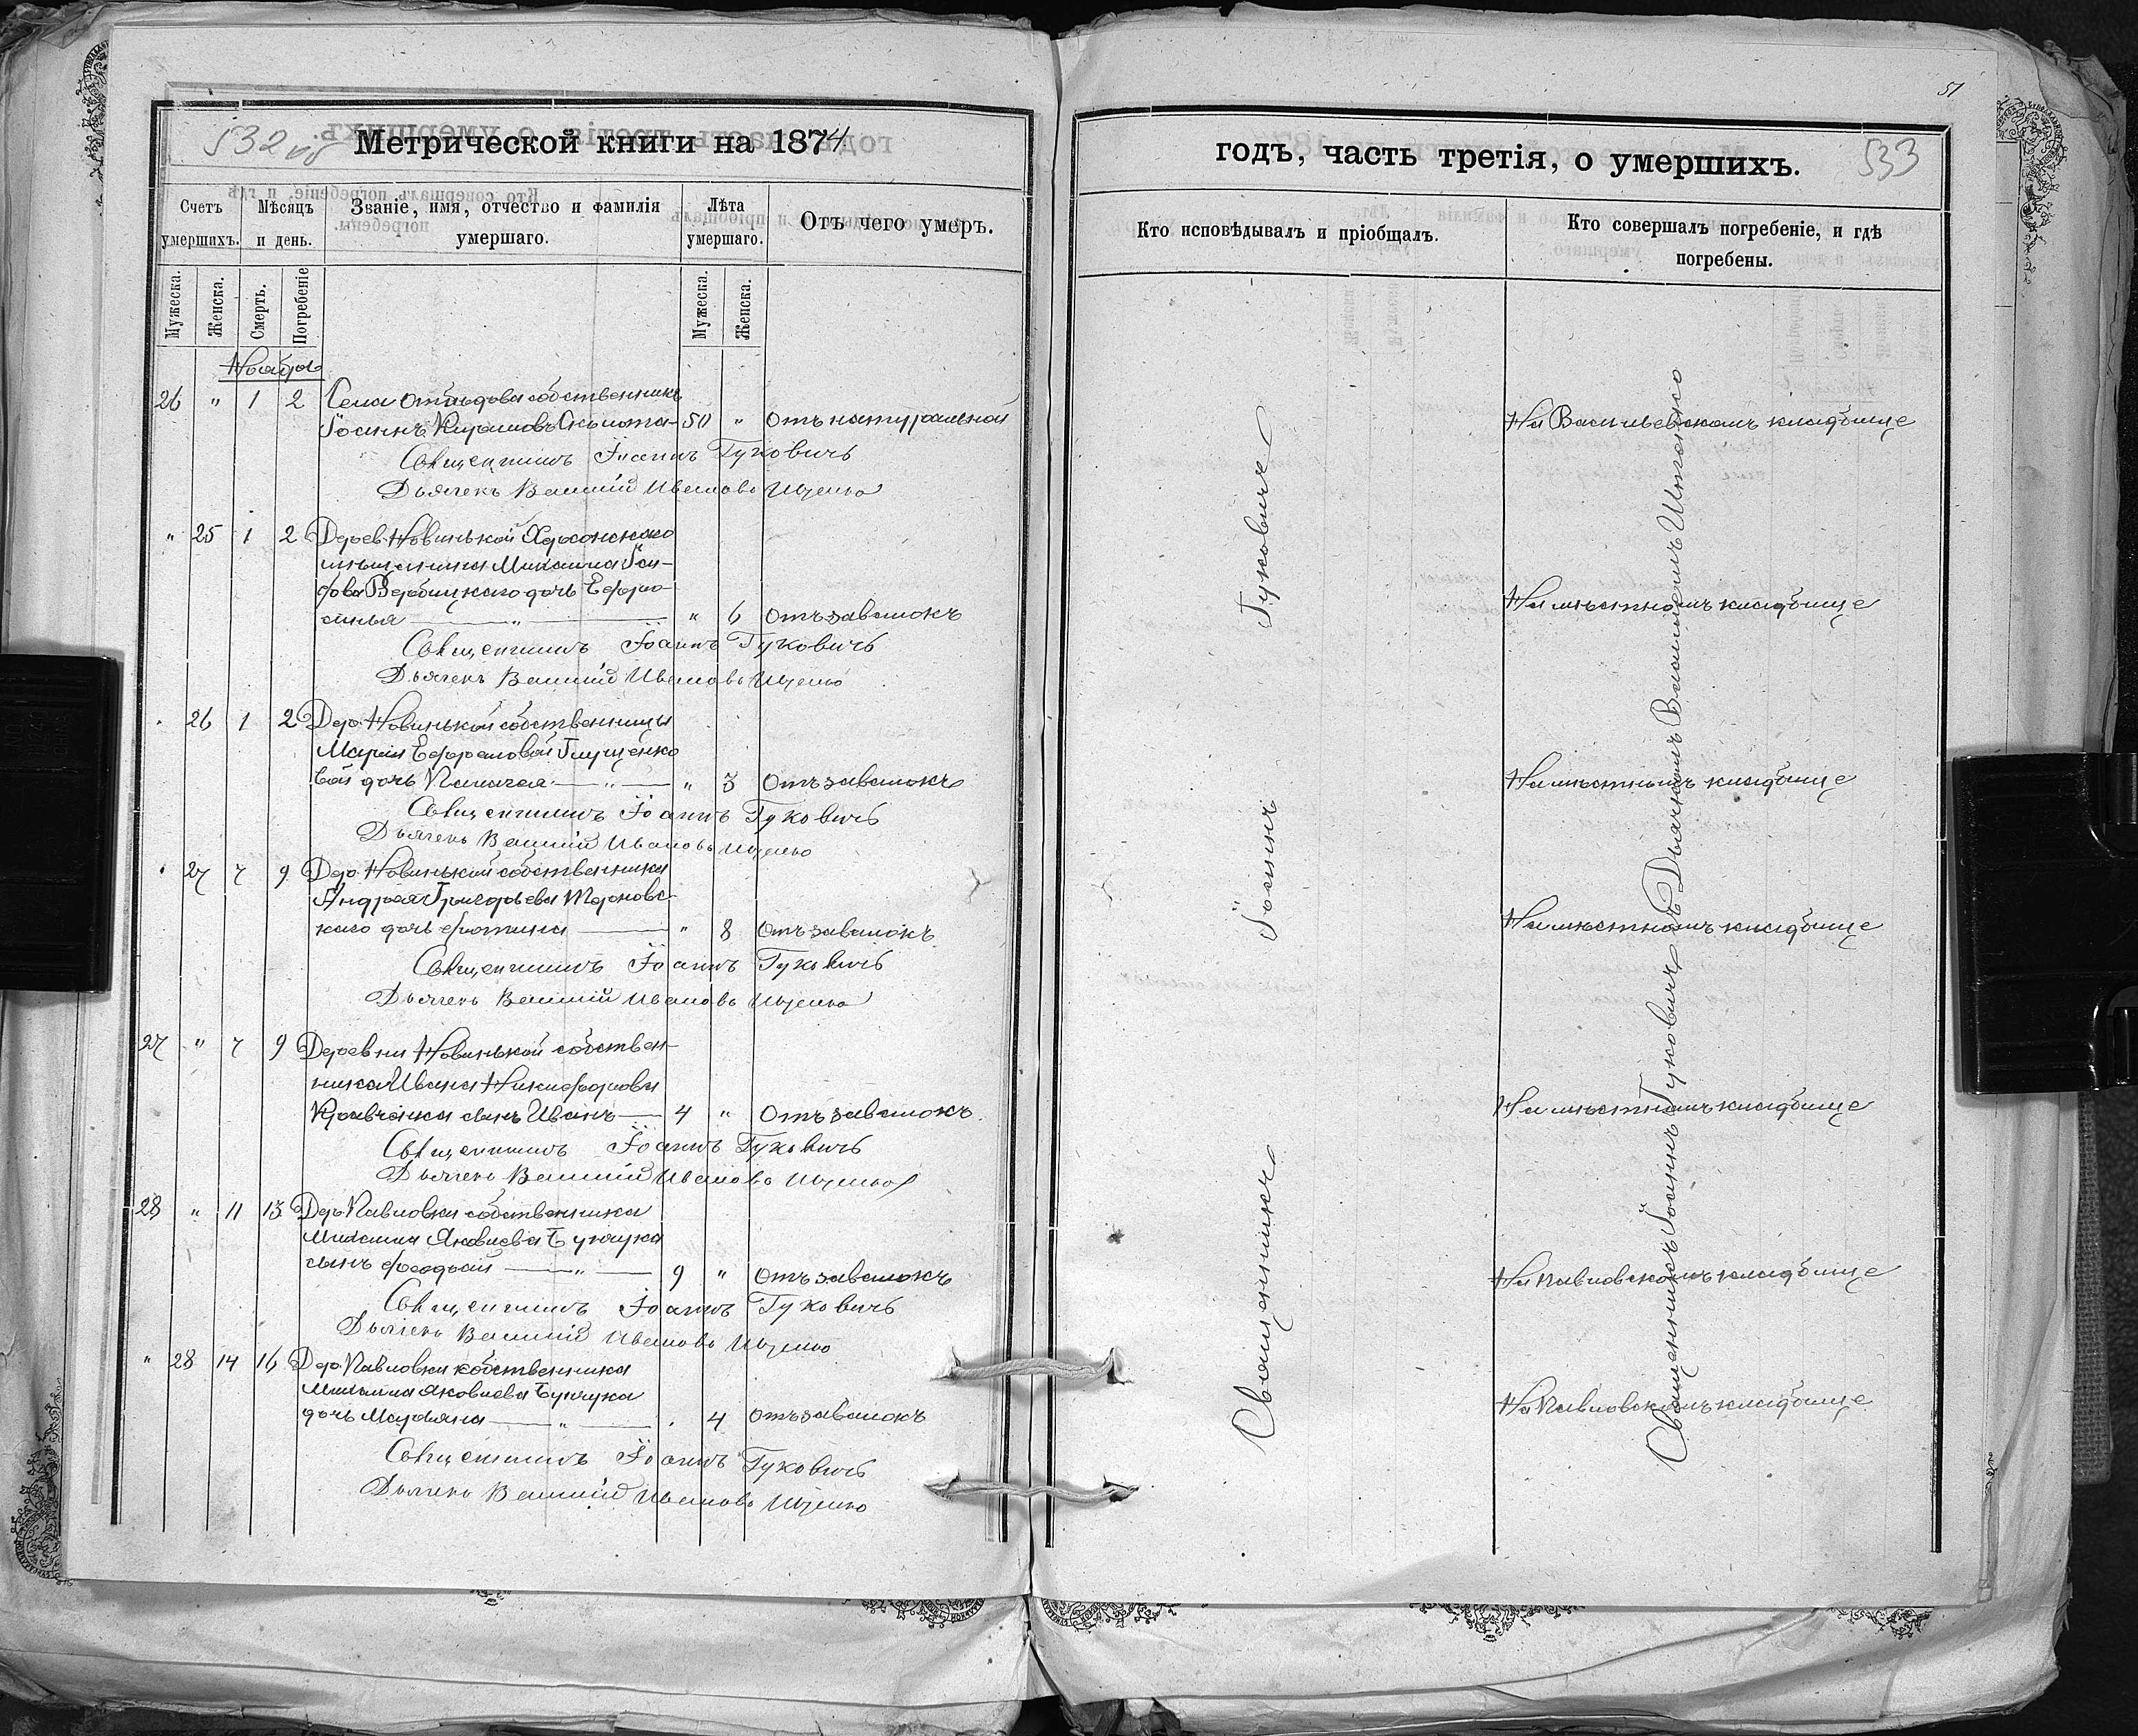 532 об
Метрической книги на 1874
Счетъ умершихъ.
Мѣсяцъ и день.
Званіе, имя, отчество и фамилія умершаго.
Лѣта умершаго.
Отъ чего умеръ.
Мужеска.
Женска.
Смерть.
Погребеніе
Мужеска.
Женска.
Ноября
26 " 1 2 Села собственникъ
Іоаннъ 50 " Отъ натуральной
Священникъ Іоаннъ Гуковичъ
Дьячекъ Василій Ивановъ Ищенко
" 25 1 2 Дерев. Новинькой Херсонскаго
мѣщанина Михаила
дочь Ефро-
синья " " 6 Отъ завалокъ
Священникъ Іоаннъ Гуковичъ
Дьячекъ Василій Ивановъ Ищенко
" 26 1 2 Дер. Новинькой собственницы
Маріи Ефремовой Глущенко
вой дочь Пелагея " " 3 Отъ завалокъ
Священникъ Іоаннъ Гуковичъ
Дьячекъ Василій Ивановъ Ищенко
" 27 7 9 Дер. Новинькой собственника
Андрея Григорьева Терновс-
каго дочь Фотина " 8 Отъ завалокъ
Священникъ Іоаннъ Гуковичъ
Дьячекъ Василій Ивановъ Ищенко
27 " 7 9 Деревни Новинькой собствен-
ника Ивана Никифорова
Кравченка сынъ Иванъ 4 " Отъ завалокъ
Священникъ Іоаннъ Гуковичъ
Дьячекъ Василій Ивановъ Ищенко
28 " 11 13 Дер. Павловки собственника
Михаила Яковлева Бунчука
сынъ Феодосій " 9 " Отъ завалокъ
Священникъ Іоаннъ Гуковичъ
Дьячекъ Василій Ивановъ Ищенко
" 28 14 16 Дер. Павловки собственника
Михаила Яковлева Бунчука
дочь Марьяна " . 4 Отъ завалокъ
Священникъ Іоаннъ Гуковичъ
Дьячекъ Василій Ивановъ Ищенко
51
годъ, часть третія, о умершихъ.
533
Кто исповѣдывалъ и пріобщалъ.
Кто совершалъ погребеніе, и гдѣ погребены.
Священникъ Іоаннъ Гуковичъ
На Васильевскомъ кладбище
На мѣстномъ кладбище
На мѣстномъ кладбище
На мѣстномъ кладбище
На мѣстномъ кладбище
На Павловскомъ кладбище
На Павловскомъ кладбище
Священникъ Іоаннъ Гуковичъ съ Дьячкомъ Василіемъ Ищенко